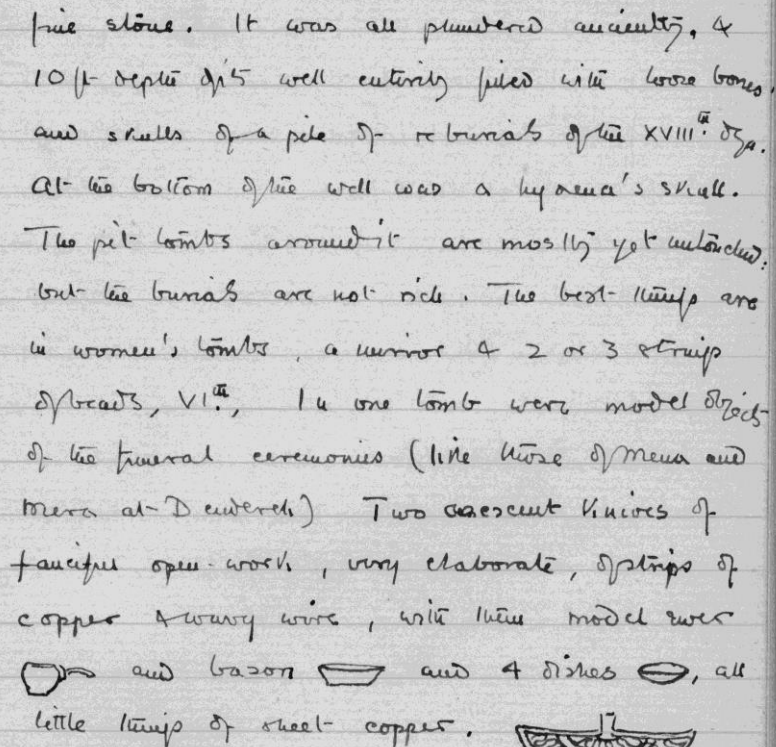 fine stone. It was all plundered anciently, &
10 ft depth of its well entirely filled with loose bones,
and skulls of a pile of reburials of the XVIIIth dyn.
At the bottom of the well was a hyaena's skull.
The pit tombs around it are mostly yet untouched:
but the burials are not rich. The best things are
in women's tombs, a mirror & 2 or 3 strings
of beads, VIth, In one tomb were model objects
of the funeral ceremonies (like those of Mena and
Mera at Dendereh) Two crescent knives of
fanciful open-work, very elaborate, of strips of
copper & wavy wire, with them model ewer
and bason and 4 dishes, all
little things of sheet copper.